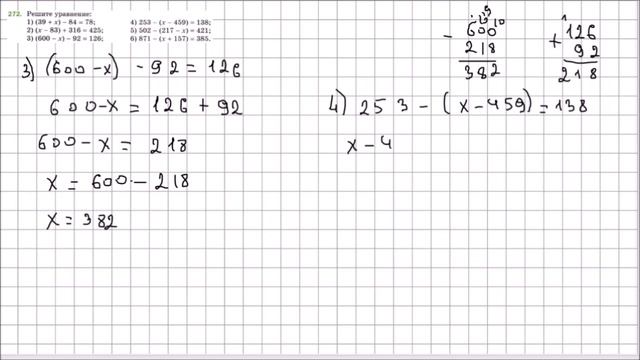 272. Решите уравнение:
1) (39 + x) − 84 = 78;
2) (x − 83) + 316 = 425;
3) (600 − x) − 92 = 126;
4) 253 − (x − 459) = 138;
5) 502 − (217 − x) = 421;
6) 871 − (x + 157) = 385.
3) (600 − x) − 92 = 126
600 − x = 126 + 92
600 − x = 218
x = 600 − 218
x = 382
− 600
218
382
+ 126
92
218
4) 253 − (x − 459) = 138
x − 4